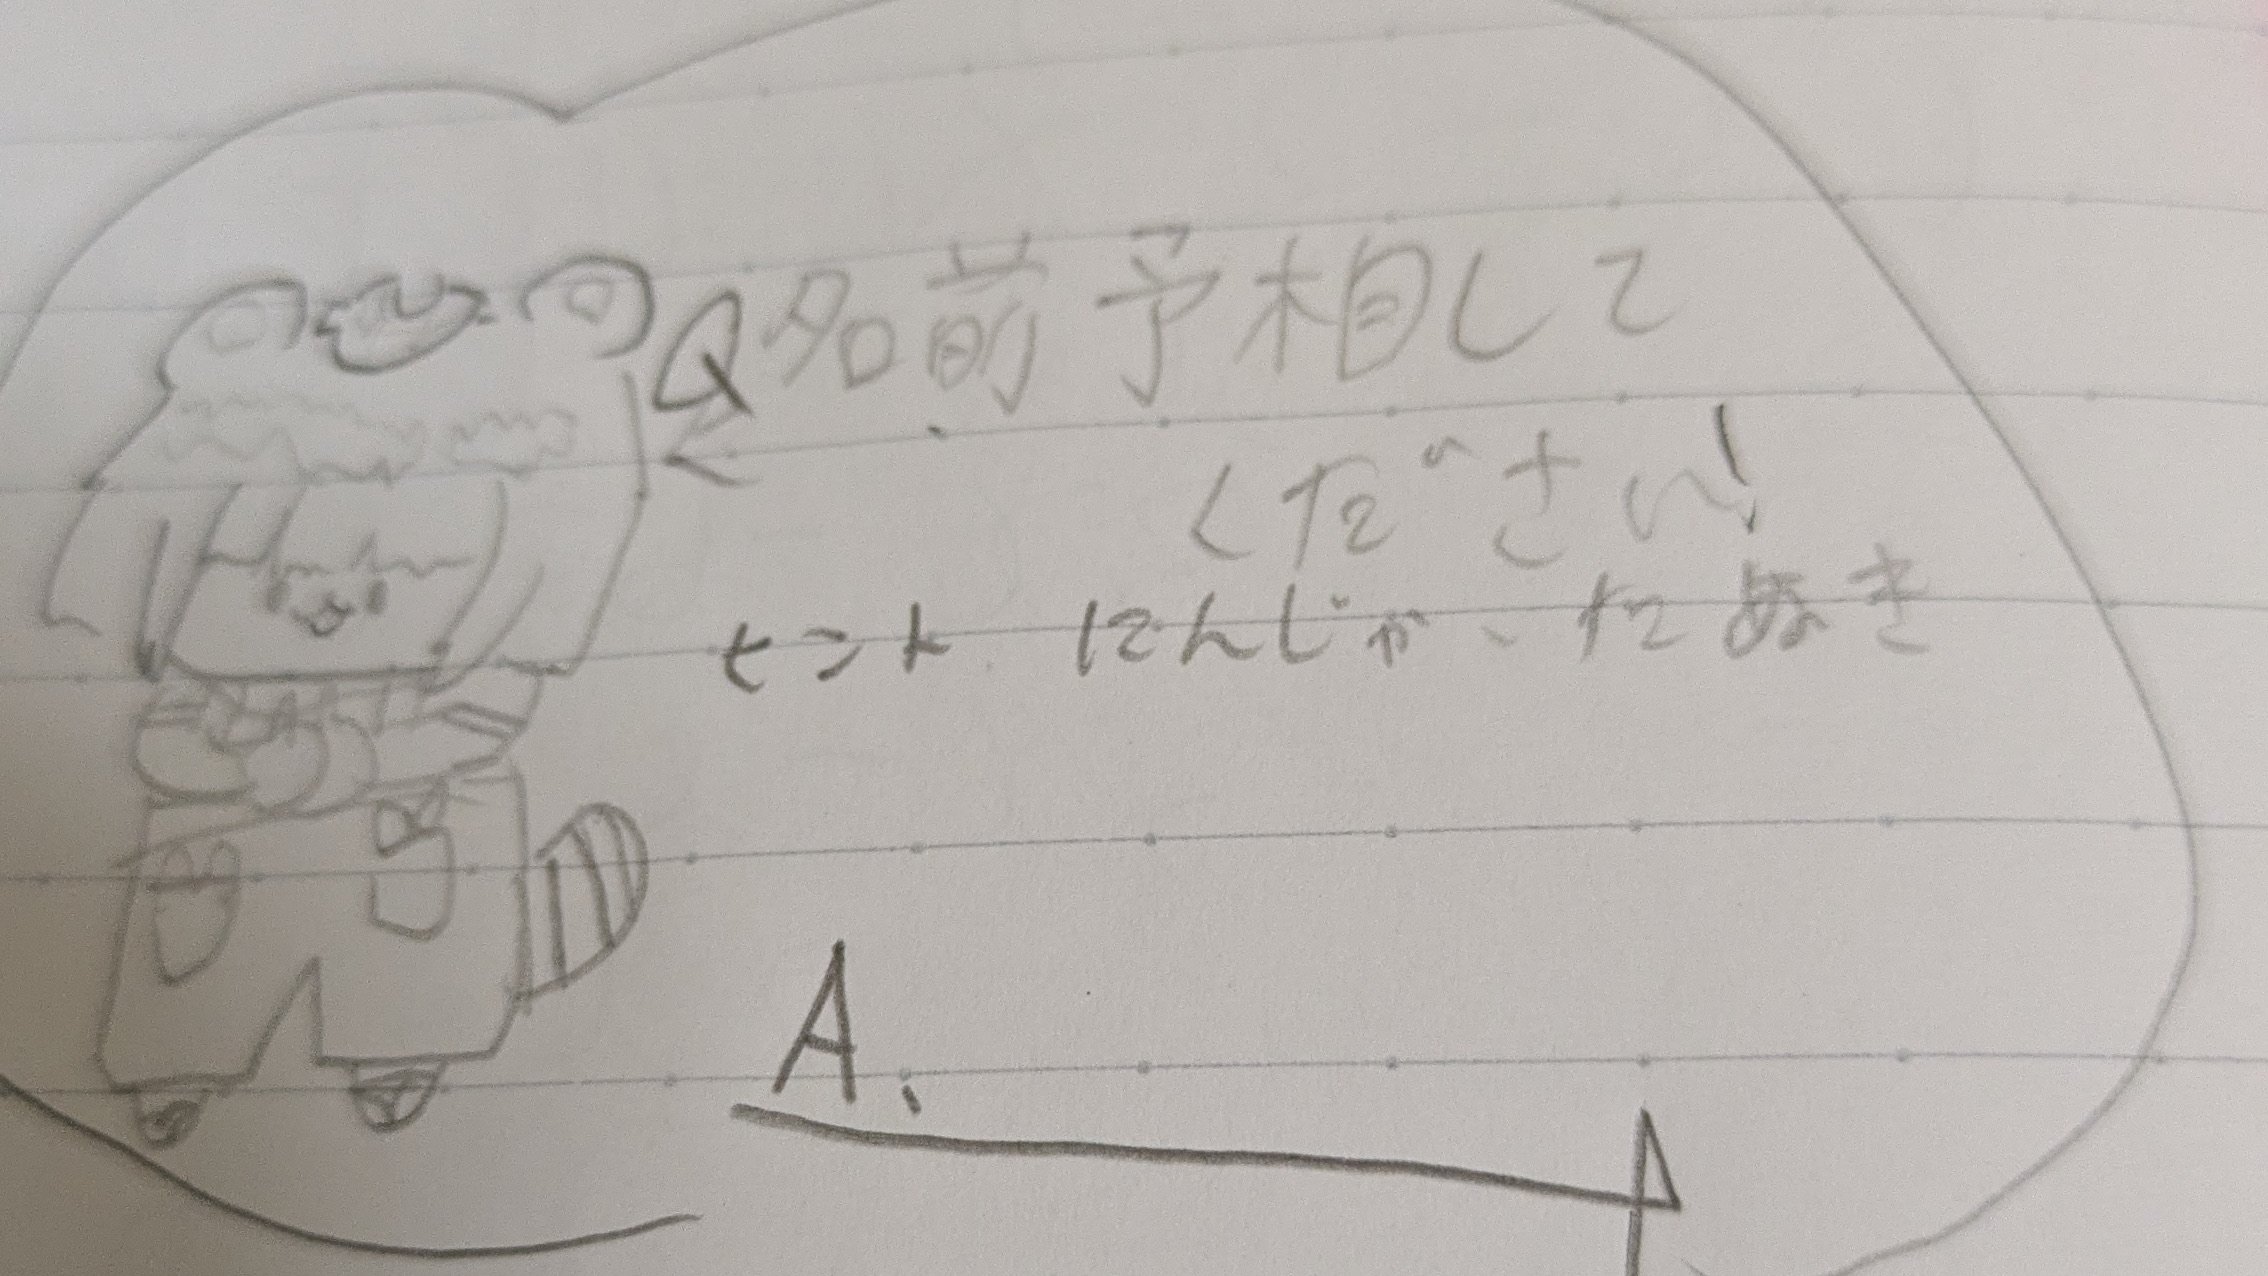 Q名前予相して
ください!
ヒント にんじゃ、たぬき
A.